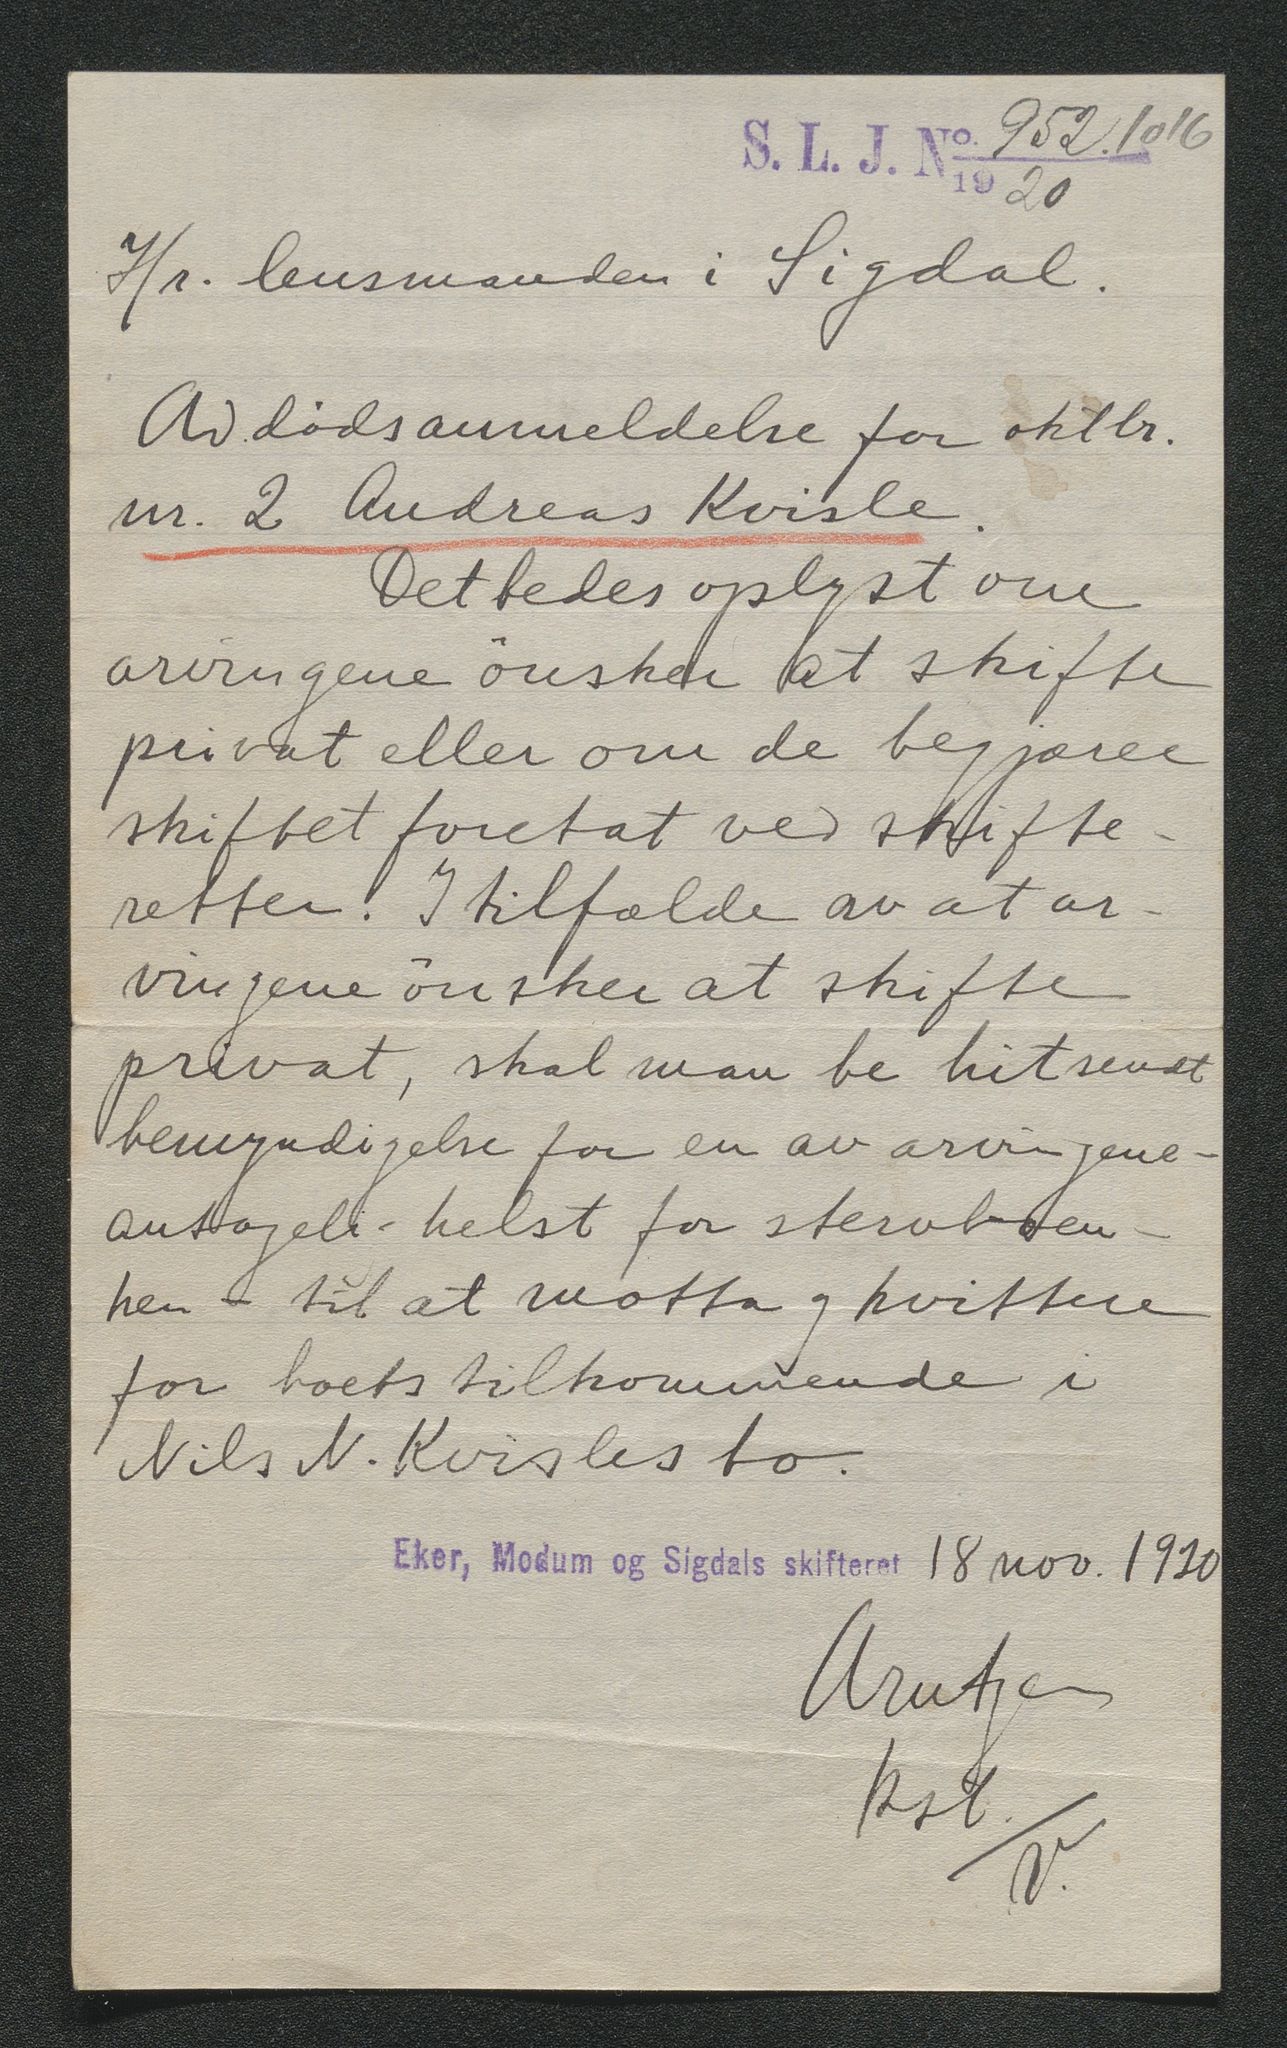 S. L. J. No. 952.1016
1920
Hr. lensmanden i Sigdal.
Ad. dødsanmeldelse for oktbr.
nr. 2 Andreas Kvisle.
Det bedes oplyst om
arvingene önsker at skifte
privat eller om de begjærer
skiftet foretat ved skifte-
retten. I tilfælde av at ar-
vingene önsker at skifte
privat, skal man be hitsendt
bemyndigelse for en av arvingene -
antagelig helst for stervboen-
ken - til at motta og kvittere
for boets tilkommende i
Nils N. Kvisles bo.
Eker, Modum og Sigdals skifteret 18 nov. 1920
Arntzen
kst.
/V.